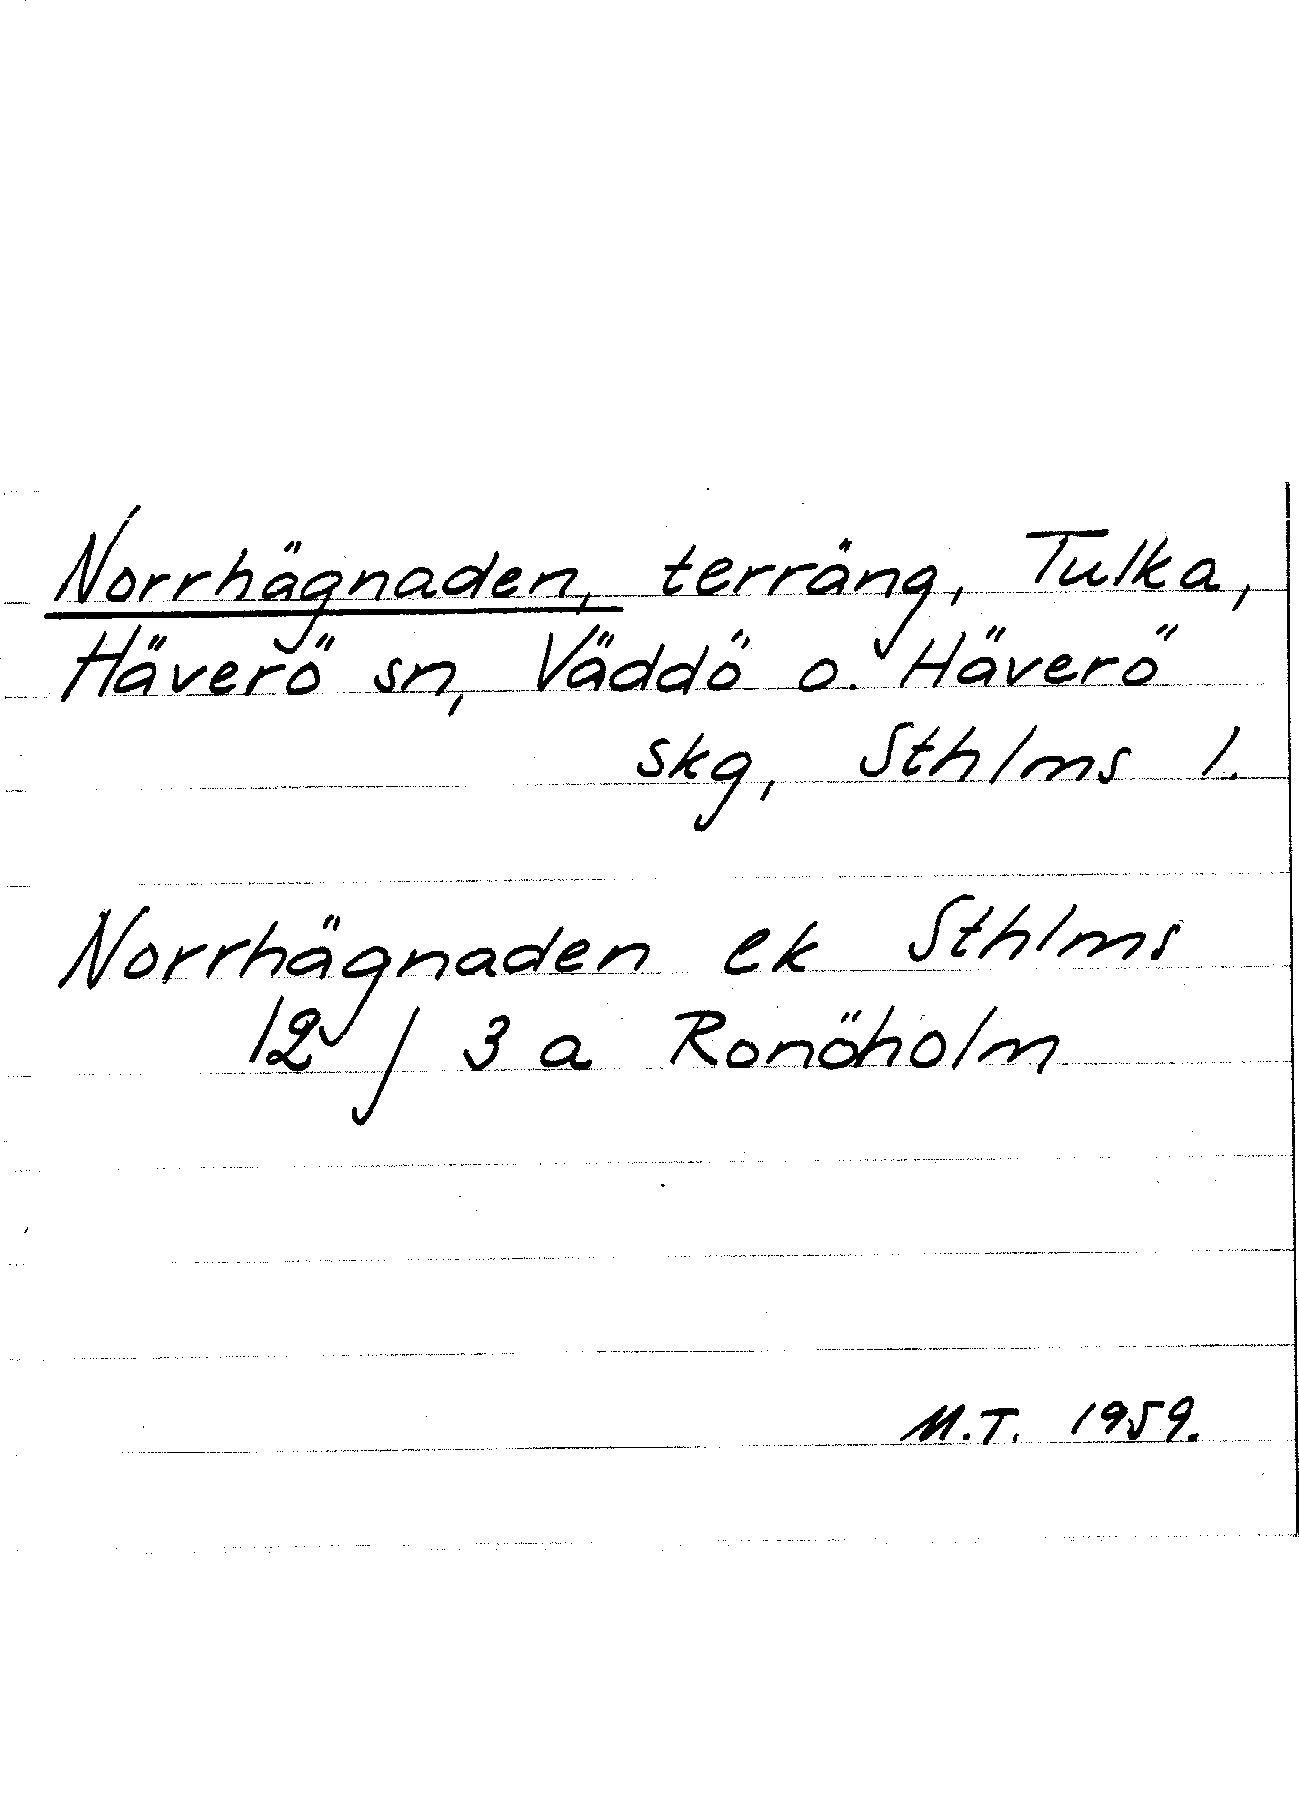 Norrhägnaden, terräng, Tulka,
Häverö sn, Väddö o. Häverö
skg, Sthlms l.
Norrhägnaden ek Sthlms
12 j 3 a Ronöholm
M.T. 1959.